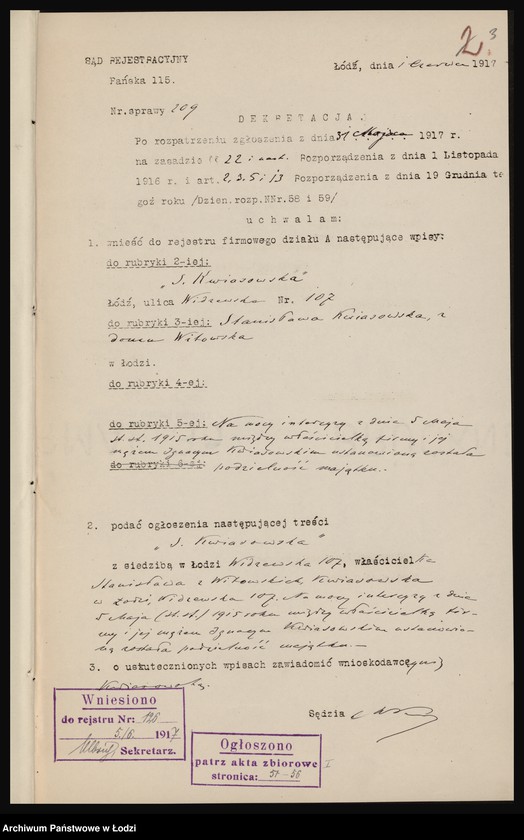 2. 3
SĄD REJESTRACYJNY
Łódź, dnia 1 Czerwca 1917
Pańska 115.
Nr.sprawy 209
DEKRETACJA.
Po rozpatrzeniu zgłoszenia z dnia 31 Maja 1917 r.
na zasadzie 22 i nast. Rozporządzenia z dnia 1 Listopada
1916 r. i art. 2, 3, 5 i 13 Rozporządzenia z dnia 19 Grudnia te
goż roku /Dzien.rozp.NNr.58 i 59/
uchwalam:
1. wnieść do rejestru firmowego działu A następujące wpisy:
do rubryki 2-iej:
„S. Kwiasowska"
Łódź, ulica Widzewska Nr. 107
do rubryki 3-iej: Stanisława Kwiasowska, z
domu Witowska
w Łodzi.
do rubryki 4-ej:
do rubryki 5-ej: Na mocy intercyzy z dnia 5 Maja
st. st. 1915 roku między właścicielką firmy i jej
mężem Ignacym Kwiasowskim ustanowioną została
do rubryki 6-ej: podzielność majątku.
2. podać ogłoszenia następującej treści
„S. Kwiasowska"
z siedzibą w Łodzi Widzewska 107, właścicielka
Stanisława z Witowskich Kwiasowska
w Łodzi, Widzewska 107. Na mocy intercyzy z dnia
5 Maja (st. st.) 1915 roku między właścicielką fir-
my i jej mężem Ignacym Kwiasowskim ustanowio-
ną została podzielność majątku.
3. o uskutecznionych wpisach zawiadomić wnioskodawcę
Kwiasowską.
Sędzia
Wniesiono
do rejstru Nr: 126
5/6. 1917
Sekretarz.
Ogłoszono
patrz akta zbiorowe I
stronica: 51-56
Archiwum Państwowe w Łodzi